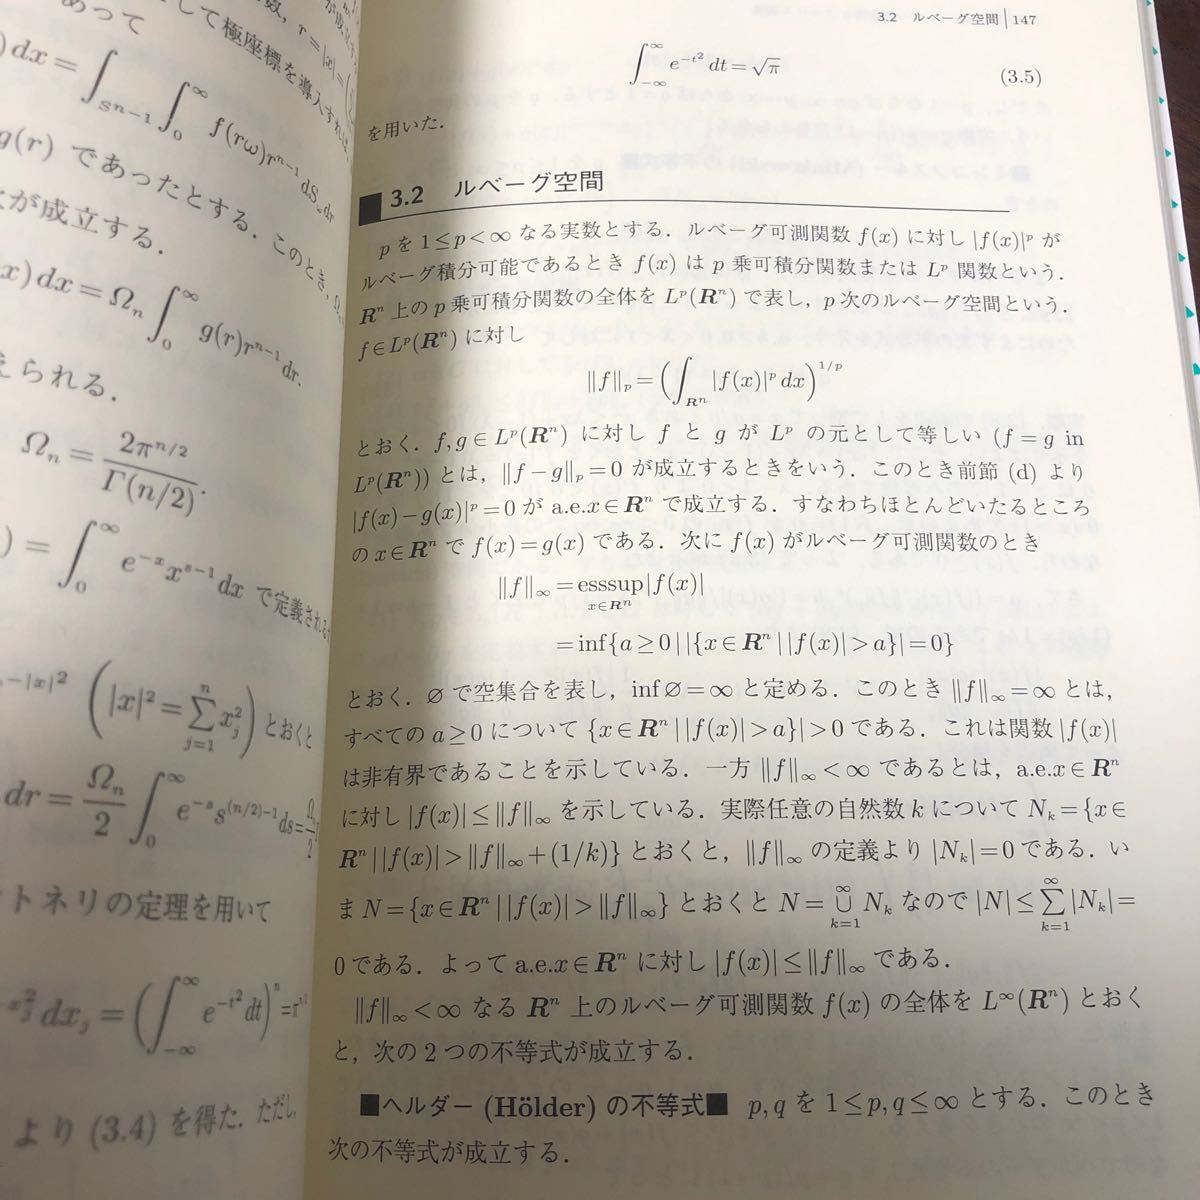 して極座標を導入すれば,
)dx = ∫_{S^{n-1}} ∫_0^∞ f(rω)r^{n-1} dS_ω dr
g(r) であったとする. このとき,
が成立する.
x)dx = Ω_n ∫_0^∞ g(r)r^{n-1} dr.
えられる.
Ω_n = 2π^{n/2} / Γ(n/2).
) = ∫_0^∞ e^{-x} x^{s-1} dx で定義される
(|x|^2 = ∑_{j=1}^n x_j^2) とおくと
dr = Ω_n/2 ∫_0^∞ e^{-s} s^{(n/2)-1} ds =
トネリの定理を用いて
dx_j = (∫_{-∞}^∞ e^{-t^2} dt)^n =
より (3.4) を得た. ただし,
3.2 ルベーグ空間 | 147
∫_{-∞}^∞ e^{-t^2} dt = √π (3.5)
を用いた.
3.2 ルベーグ空間
p を 1≤p<∞ なる実数とする. ルベーグ可測関数 f(x) に対し |f(x)|^p が
ルベーグ積分可能であるとき f(x) は p 乗可積分関数または L^p 関数という.
R^n 上の p 乗可積分関数の全体を L^p(R^n) で表し, p 次のルベーグ空間という.
f∈L^p(R^n) に対し
‖f‖_p = (∫_{R^n} |f(x)|^p dx)^{1/p}
とおく. f, g∈L^p(R^n) に対し f と g が L^p の元として等しい (f=g in
L^p(R^n)) とは, ‖f−g‖_p=0 が成立するときをいう. このとき前節 (d) より
|f(x)−g(x)|^p=0 が a.e.x∈R^n で成立する. すなわちほとんどいたるところ
の x∈R^n で f(x)=g(x) である. 次に f(x) がルベーグ可測関数のとき
‖f‖_∞ = esssup_{x∈R^n} |f(x)|
= inf{a≥0 | |{x∈R^n | |f(x)|>a}|=0}
とおく. ∅ で空集合を表し, inf ∅=∞ と定める. このとき ‖f‖_∞=∞ とは,
すべての a≥0 について {x∈R^n | |f(x)|>a}|>0 である. これは関数 |f(x)|
は非有界であることを示している. 一方 ‖f‖_∞<∞ であるとは, a.e.x∈R^n
に対し |f(x)|≤‖f‖_∞ を示している. 実際任意の自然数 k について N_k={x∈
R^n | |f(x)|>‖f‖_∞+(1/k)} とおくと, ‖f‖_∞ の定義より |N_k|=0 である. い
ま N={x∈R^n | |f(x)|>‖f‖_∞} とおくと N=∪_{k=1}^∞ N_k なので |N|≤∑_{k=1}^∞|N_k|=
0 である. よって a.e.x∈R^n に対し |f(x)|≤‖f‖_∞ である.
‖f‖_∞<∞ なる R^n 上のルベーグ可測関数 f(x) の全体を L^∞(R^n) とおく
と, 次の 2 つの不等式が成立する.
■ヘルダー (Hölder) の不等式■ p, q を 1≤p, q≤∞ とする. このとき
次の不等式が成立する.